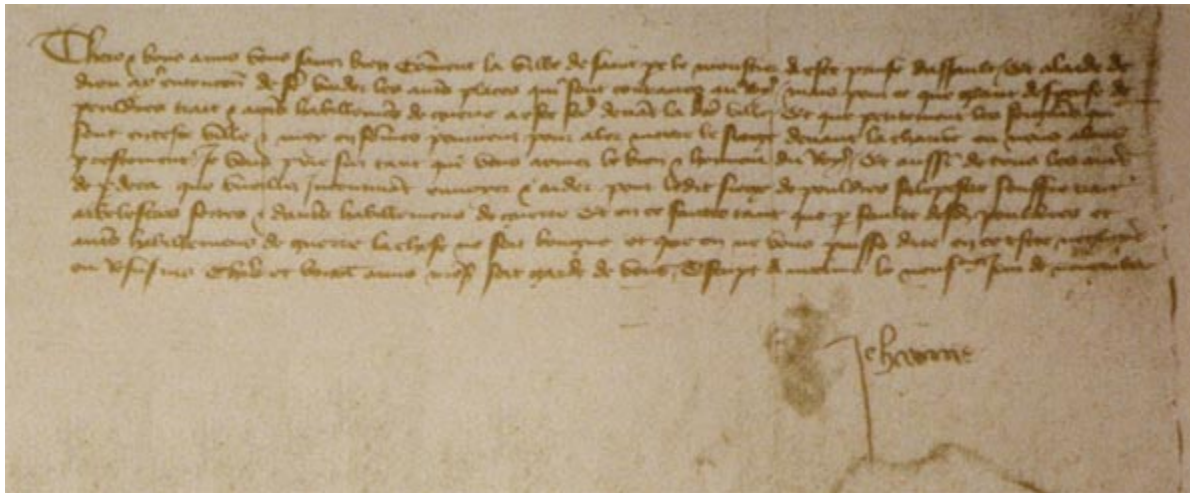 Chers & bons amis vous savez bien comment la ville de saint pere le moustier a este prinse dassault et a laide de
dieu ay entencion de faire vuider les autres places qui sont contraires au Roy mais pour ce que grant despense de
pouldres trait & autres habillemens de guerre a este fte devant la dte ville et que petitement les seigneurs qui
sont en ceste ville & moy en sommes pourveuz pour aler mectre le siege devant la charite ou nous alons
prestement Je vous prie sur tant que vous aymez le bien & honneur du Roy et aussi de tous les autres
de par deca que vueillez incontinant envoyer & aider pour ledit siege de pouldres salepestre souffre trait
arbelestres fortes & dautres habillemens de guerre Et en ce faictes tant que par faulte desd pouldres et
autres habillemens de guerre la chose ne soit longue et que on ne vous puisse dire en ce estre negligens
ou Refusans Chiers et bons amis nre sire soit garde de vous Escript a molins le neufme jour de novembre
Jehanne